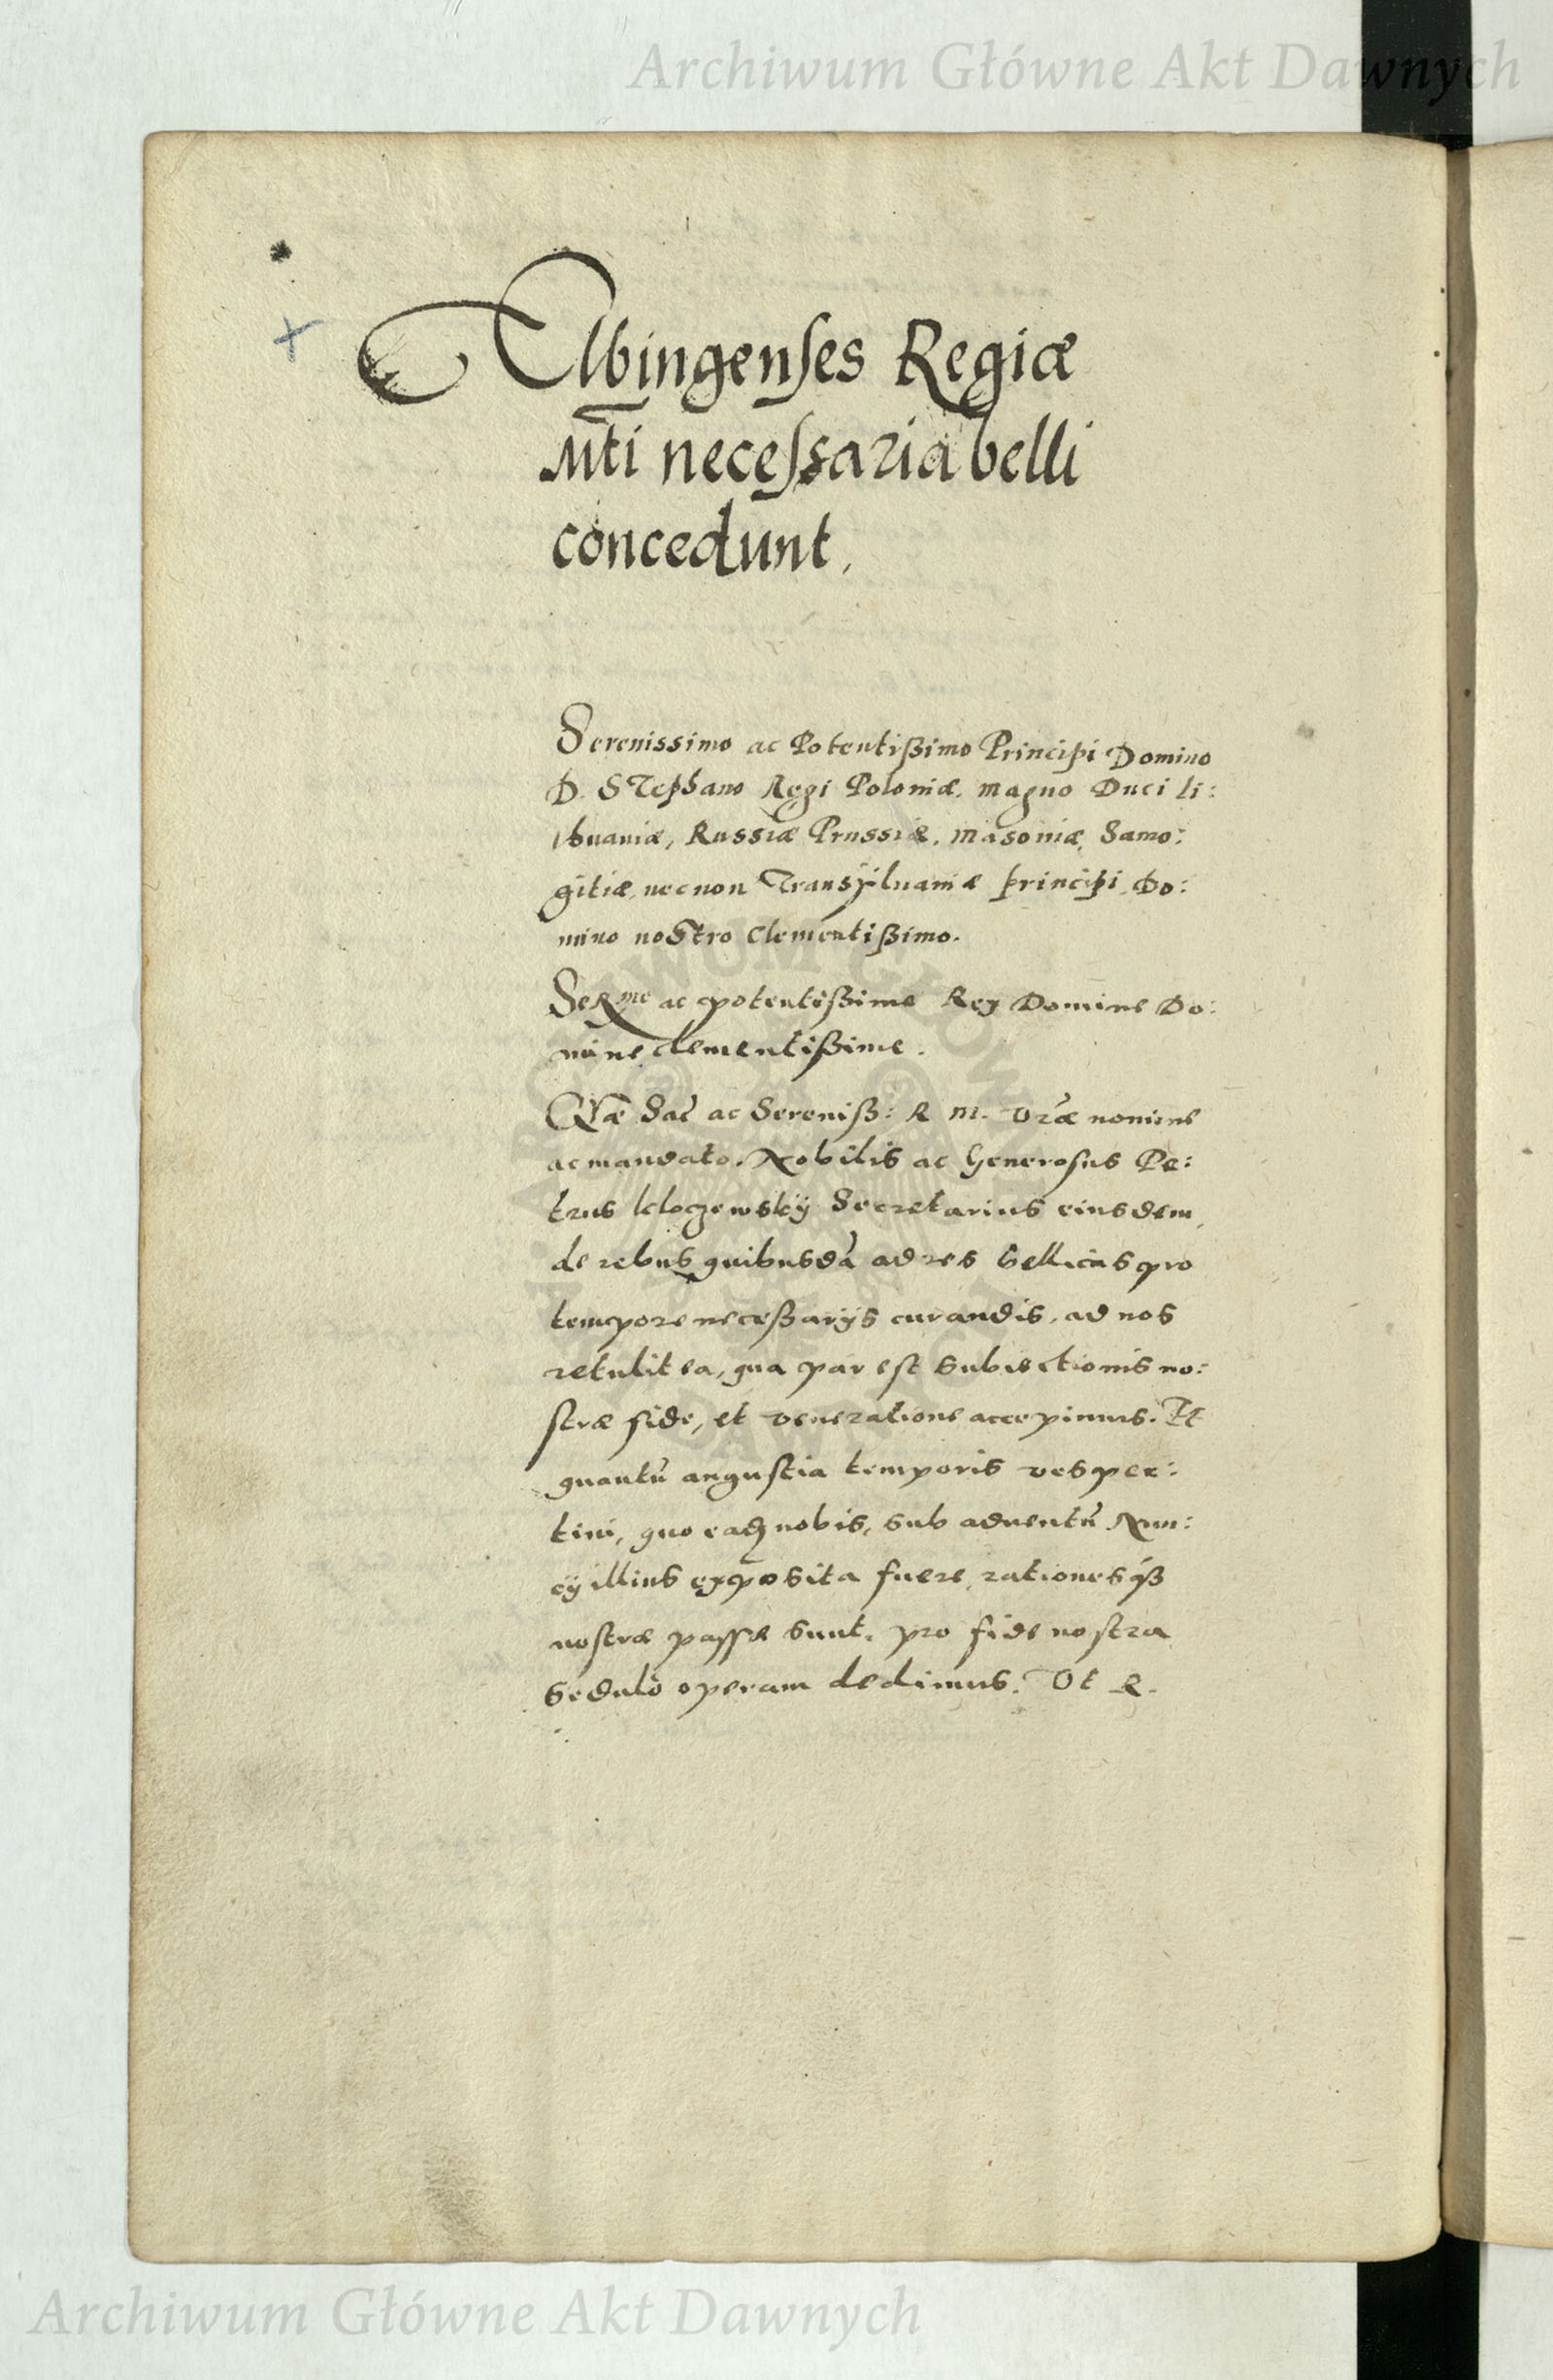 Archiwum Główne Akt Dawnych
Elbingenses Regiæ
Mti necessaria belli
concedunt.
Serenissimo ac Potentißimo Principi Domino
D. Stephano Regi Poloniæ. Magno Duci Li:
thuaniæ, Russiæ Prussiæ, Masoniæ, Samo:
gitiæ, necnon Transÿluaniæ Principi, Do:
mino nostro Clementißimo.
SeRme ac potentißime Rex Domine Do:
mine clementißime.
Quæ Sac ac Sereniß: R. M. Vræ nomine
ac mandato, Nobilis ac Generosus Pe:
trus Kloczewskÿ Secretarius eiusdem,
de rebus quibusdã ad res bellicas pro
tempore neceßarÿs curandis, ad nos
retulit ea, qua par est subiectionis no:
stræ fide, et veneratione accepimus. Et
quantũ angustia temporis vesper:
tini, quo eadẽ nobis, sub aduentũ Nun:
cÿ illius exposita fuere, rationesqß
nostræ passæ sunt, pro fide nostra
sedulò operam dedimus. Vt R.
Archiwum Główne Akt Dawnych